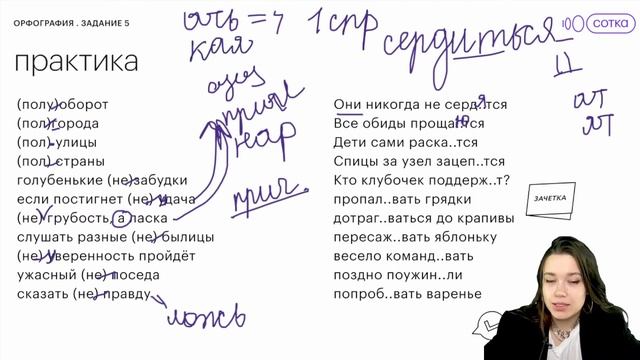 ОРФОГРАФИЯ . ЗАДАНИЕ 5
сотка
ать = 7
1 спр
сердиться
II
кая
практика
ат
ят
прич
нар
прич.
(полу)оборот
(пол)города
(пол)улицы
(пол)страны
голубенькие (не)забудки
если постигнет (не)удача
(не)грубость, а ласка
слушать разные (не)былицы
(не)уверенность пройдёт
ужасный (не)поседа
сказать (не)правду
ложь
Они никогда не сердятся
Все обиды прощаются
Дети сами раска..тся
Спицы за узел зацеп..тся
Кто клубочек поддерж..т?
пропал..вать грядки
дотраг..ваться до крапивы
пересаж..вать яблоньку
весело команд..вать
поздно поужин..ли
попроб..вать варенье
ЗАЧЕТКА